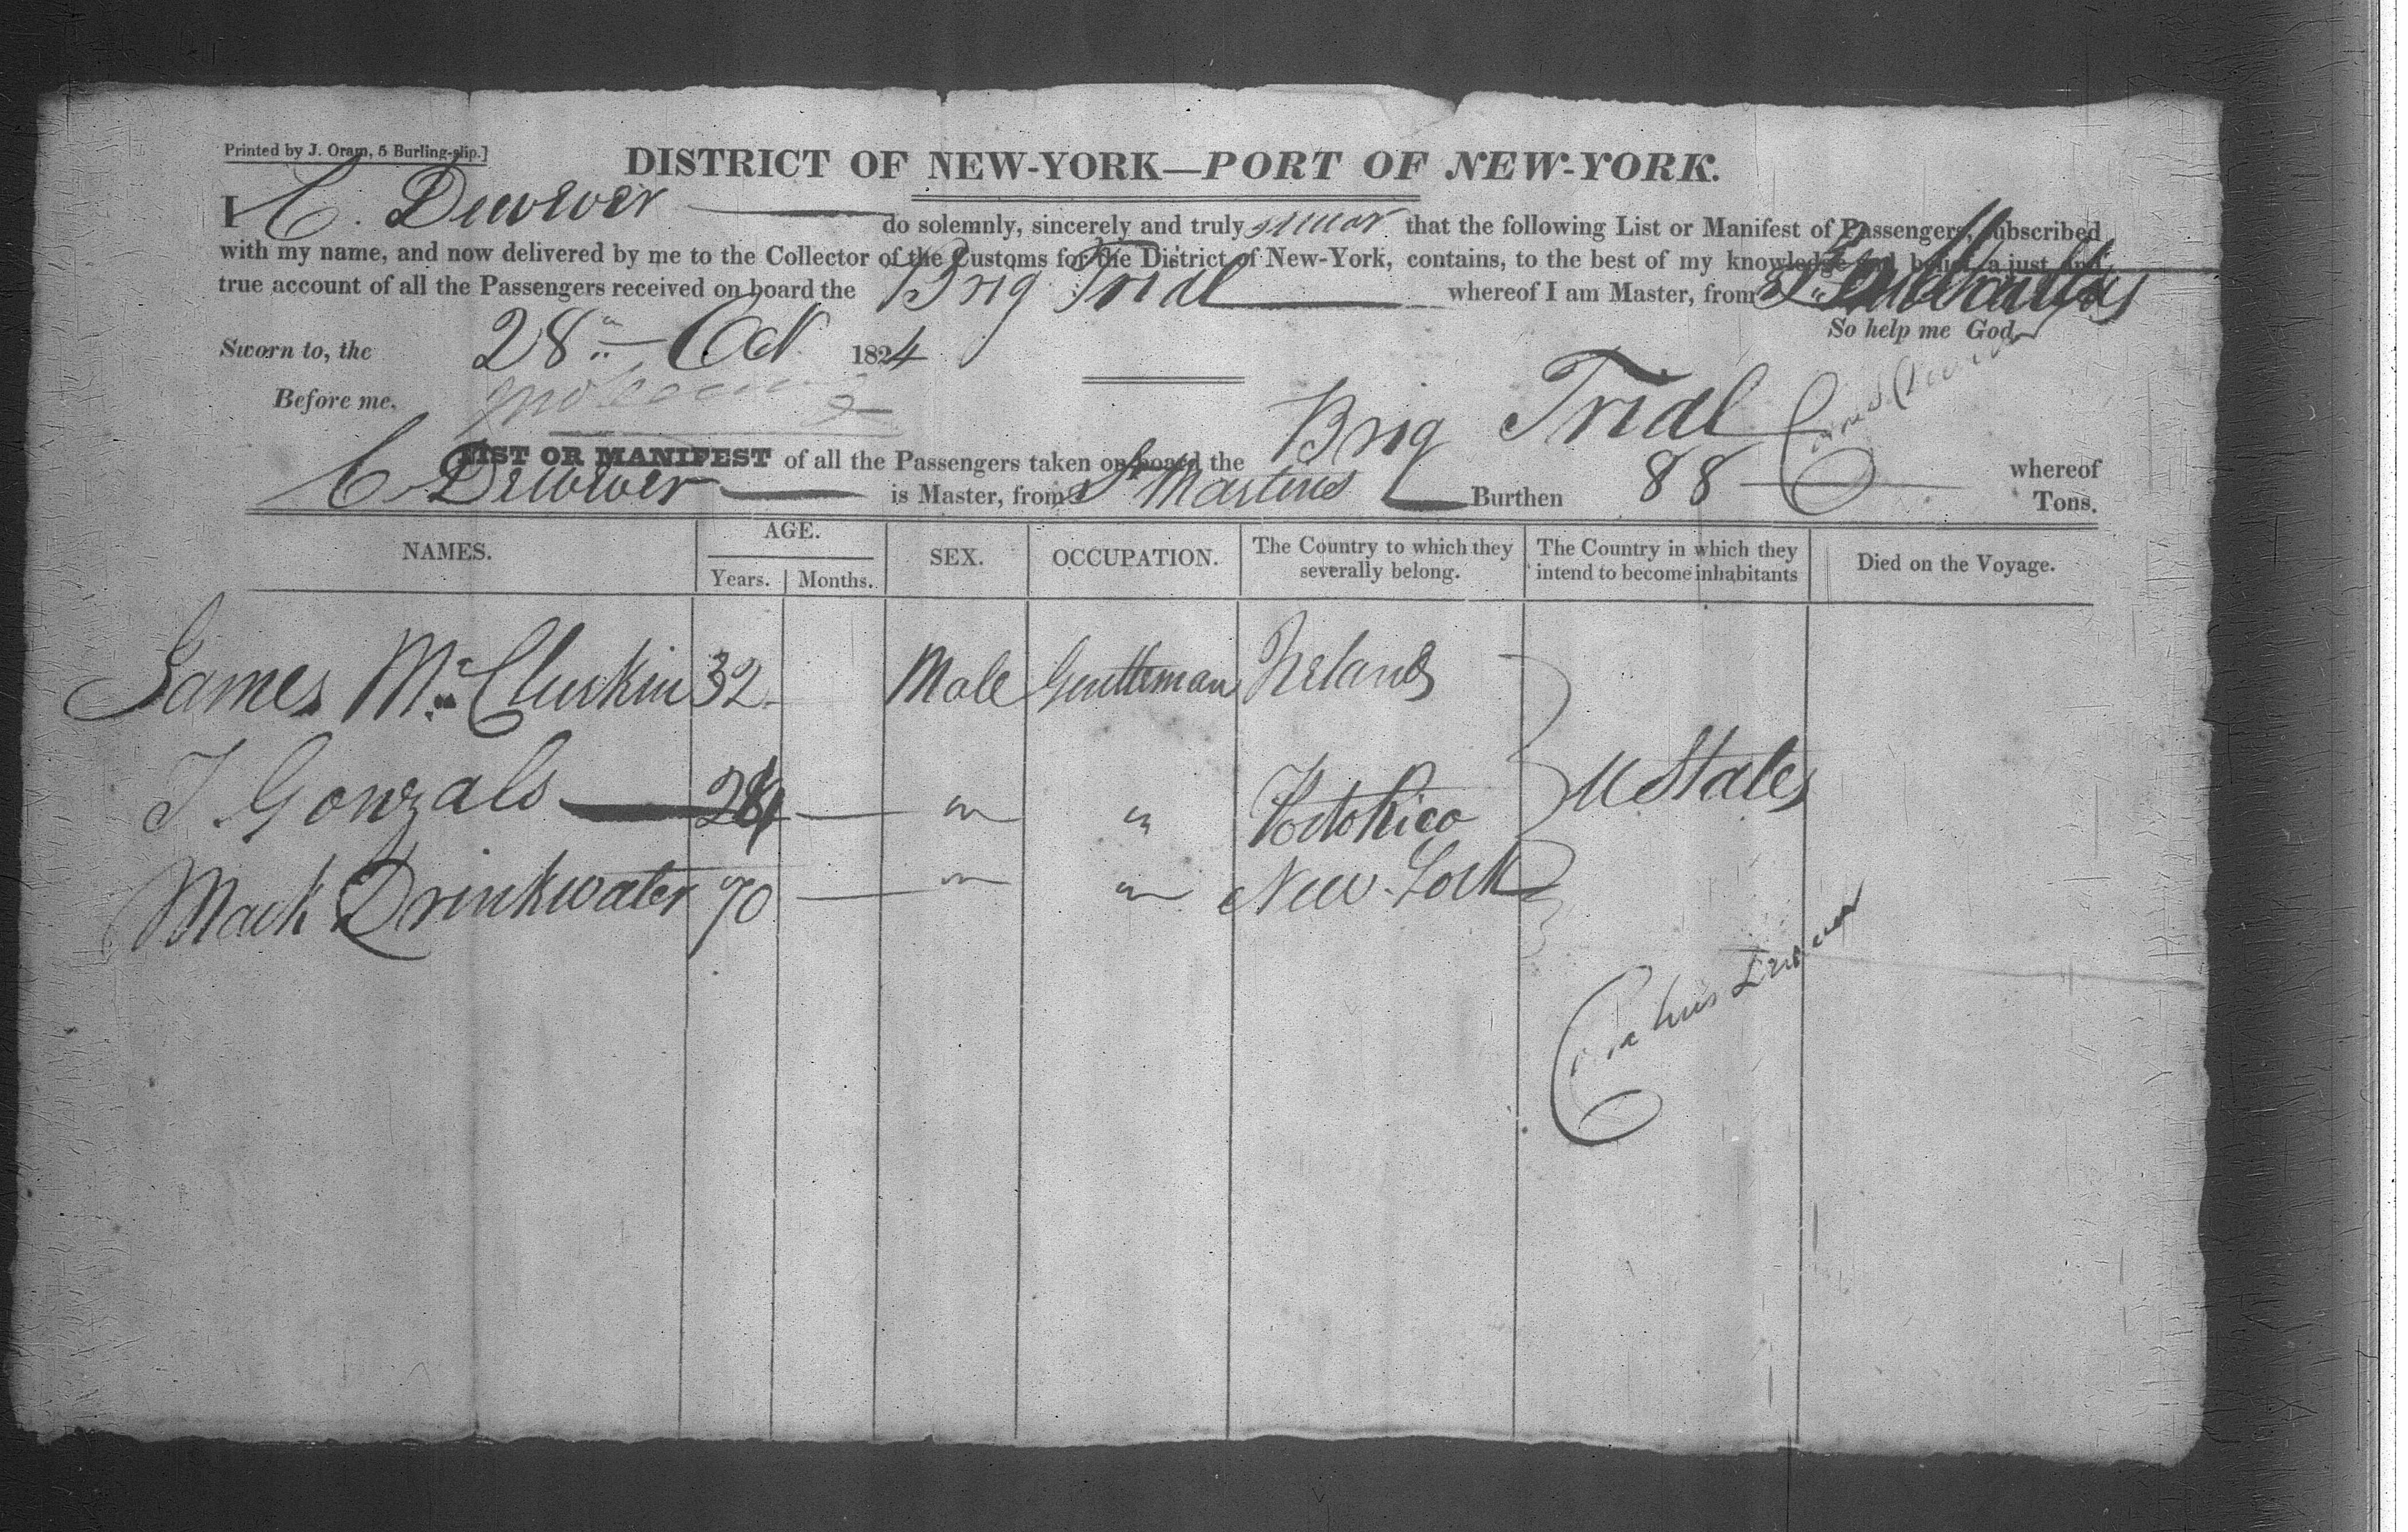 Printed by J. Oram, 5 Burling-slip.]
DISTRICT OF NEW-YORK—PORT OF NEW-YORK.
I C. Dewwer do solemnly, sincerely and truly swear that the following List or Manifest of Passengers, subscribed
with my name, and now delivered by me to the Collector of the Customs for the District of New-York, contains, to the best of my knowledge and belief, a just and
true account of all the Passengers received on board the Brig Trial whereof I am Master, from
So help me God.
Sworn to, the 28th Oct 1824
Before me,
LIST OR MANIFEST of all the Passengers taken on board the Brig Trial whereof
C. Dewwer is Master, from St Martins Burthen 88 Tons.
NAMES. AGE. SEX. OCCUPATION. The Country to which they severally belong. The Country in which they intend to become inhabitants Died on the Voyage.
Years. Months.
James Mc Cluskin 32 Male Gentleman Ireland
J Gonzals — " " PortoRico U States
Mark Drinkwater 70 — " " New-York